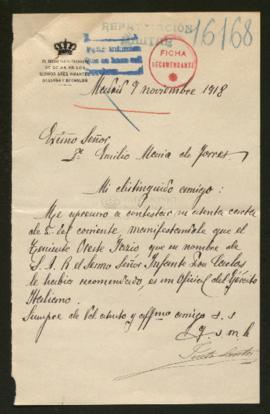 16168
REPATRIACION
MILITAR
FICHA
RECOMENDANTE
EL SECRETARIO PARTICULAR
DE SS. AA. RR. LOS
SERMOS. SRES. INFANTES
Madrid 9 noviembre 1918
Excmo Señor
Dn. Emilio Maria de Torres
Mi distinguido amigo:
Me apresuro a contestar su atenta carta
de 5 del corriente manifestandole que el
Teniente Oreste que en nombre de
S. A. R. el Sermo Señor Infante Don Carlos
le habia recomendado, es un Oficial del Ejército
Italiano.
Siempre de Vd. atento y affmo amigo s. s.
q. s. m. b.